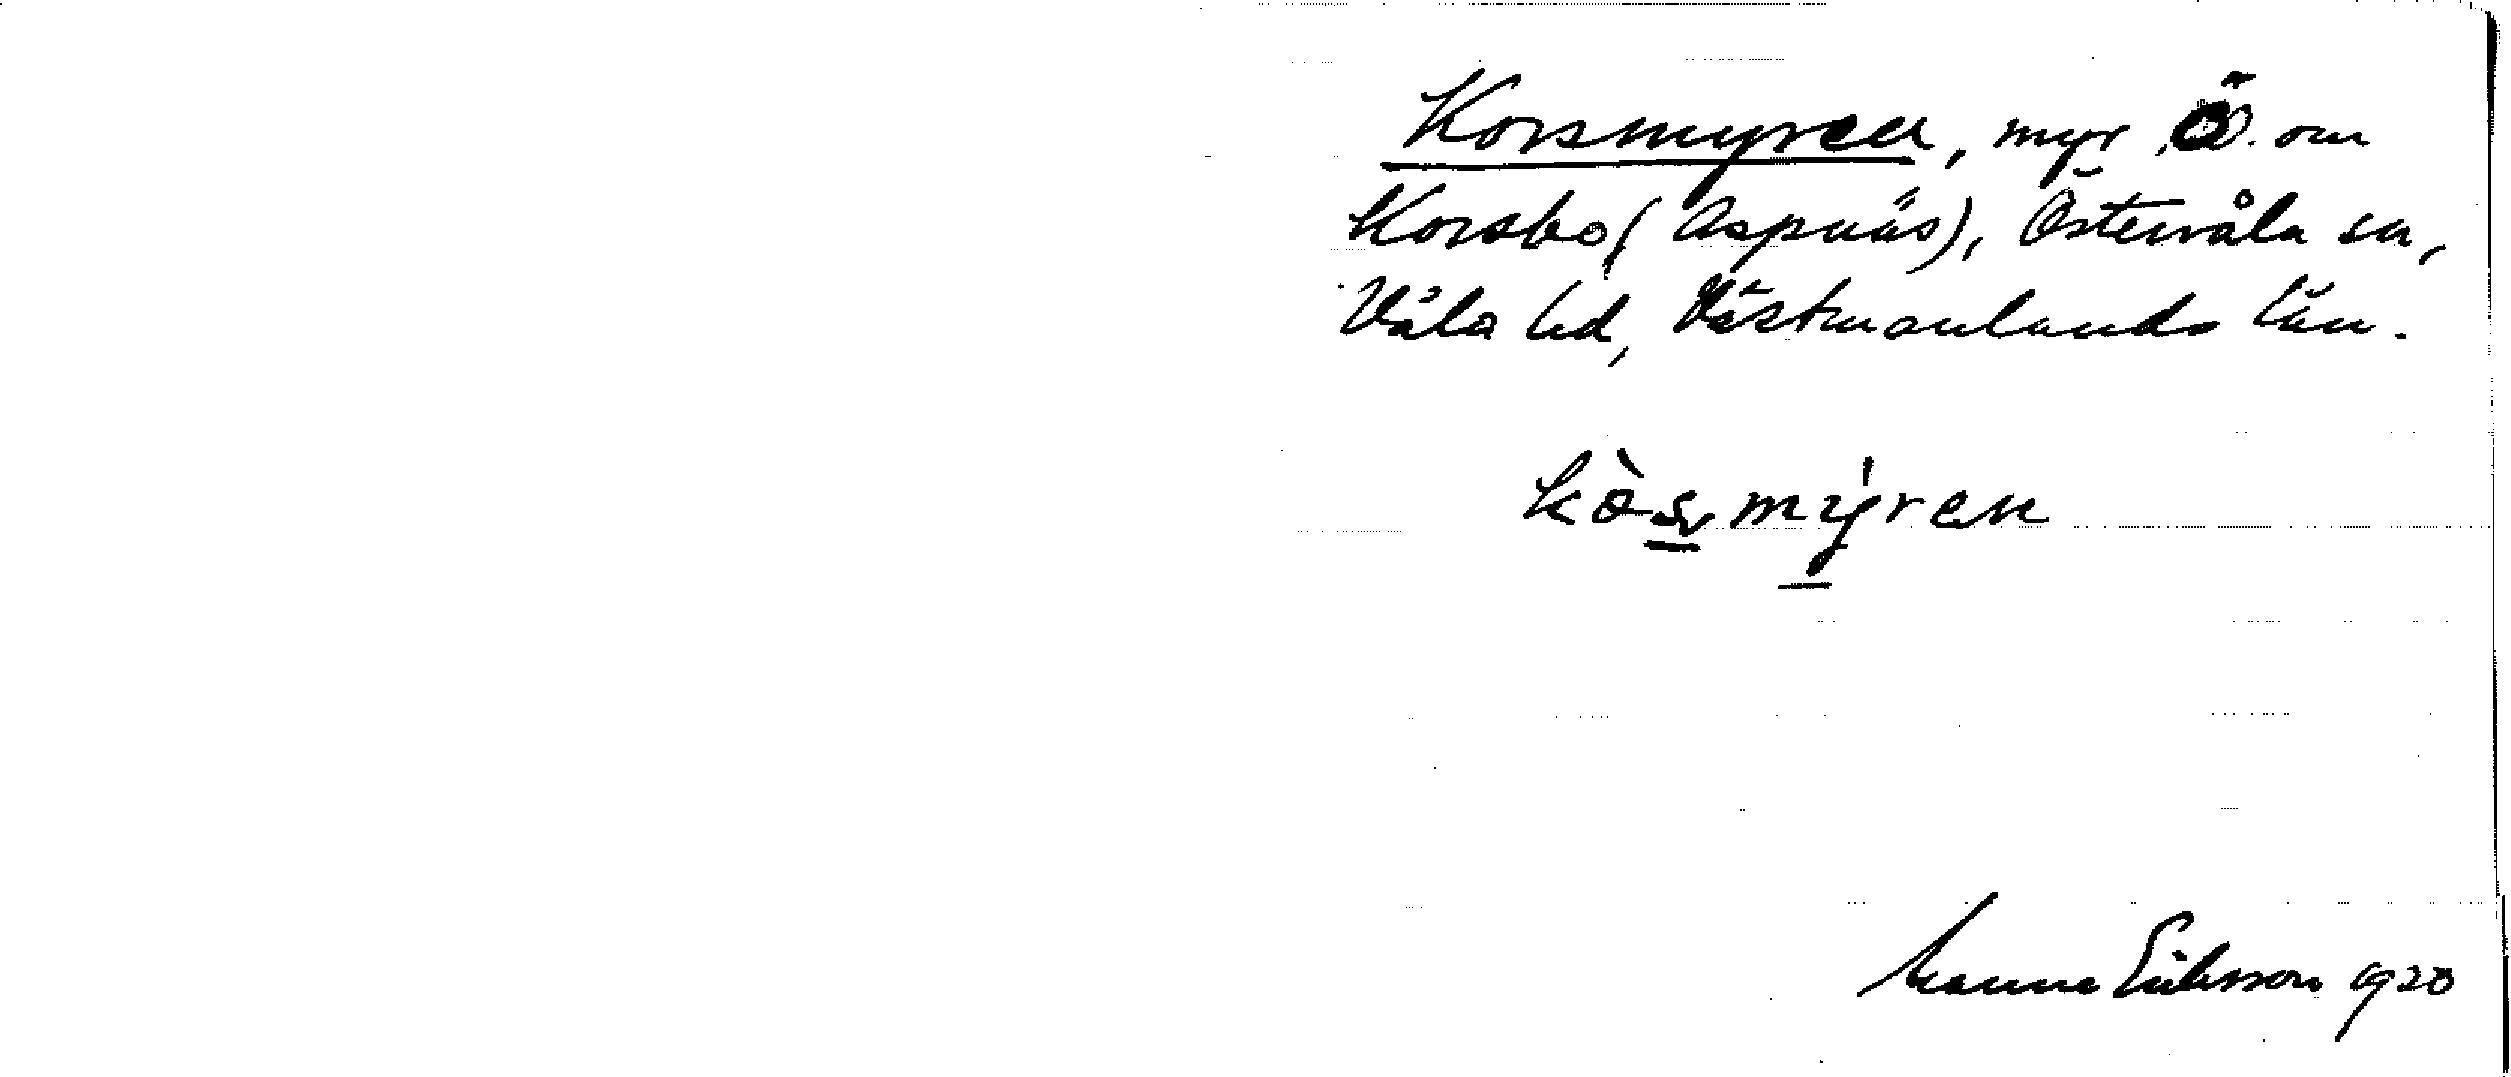 Korsmyren, myr Ö. om
Korsbo (Aspnäs), Östervåla sn,
Våla hd, Västmanlands län.
kòsmýren
Manne Eriksson 1920